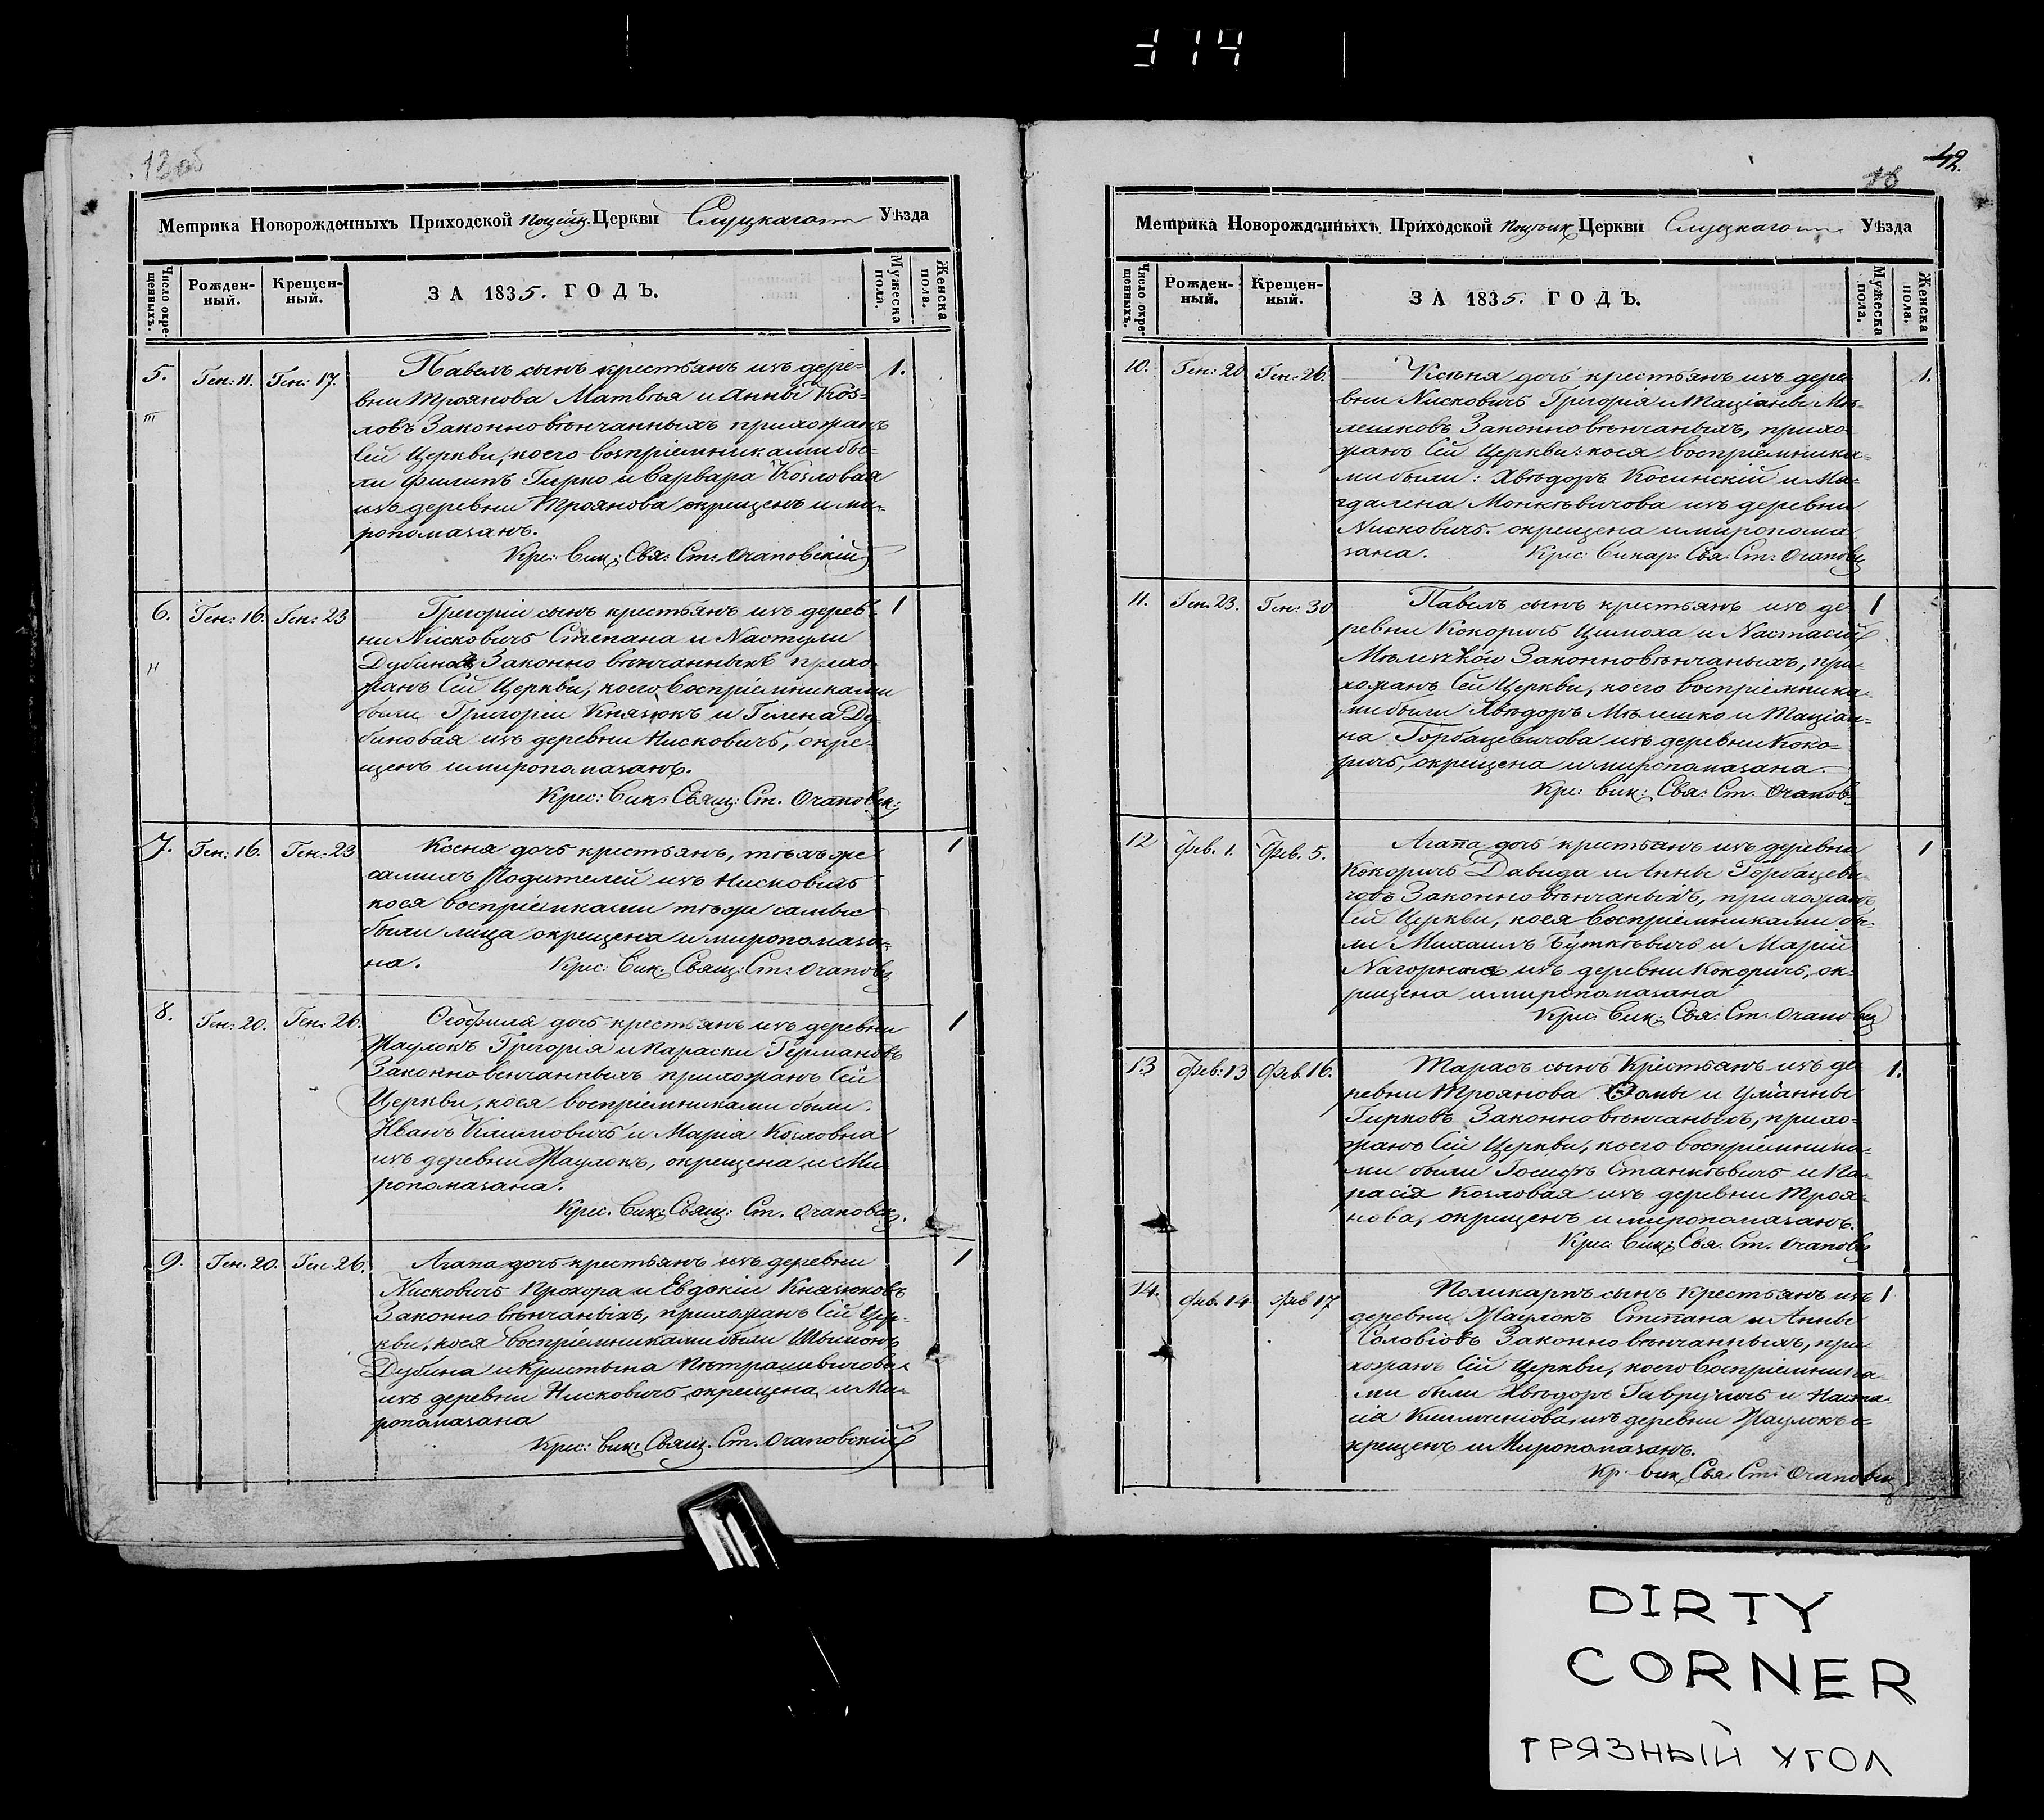 374
13 об
Метрика Новорожденныхъ Приходской Поцейк. Церкви Слуцкаго Уѣзда
Число окрещенныхъ. Рожденный. Крещенный. ЗА 1835. ГОДЪ. Мужеска пола. Женска пола.
5. Ген: 11. Ген: 17. Павелъ сынъ крестьянъ изъ дере- 1.
вни Троянова Матвѣя и Анны Коз-
ловъ Законновѣнчанныхъ прихожанъ
Сей Церкви, коего воспріемниками бы-
ли Филипъ Гирко и Варвара Козловая
изъ деревни Троянова окрещенъ и ми-
ропомазанъ.
Кре: Вик: Свя: Ст: Очаповскій
6. Ген: 16. Ген: 23 Григорій сынъ крестьянъ изъ дерев- 1
ни Nисковичъ Степана и Nастули
Дубинов Законно вѣнчанныхъ прихо-
жанъ Сей Церкви, коего воспріемниками
были Григорій Князюкъ и Гелена Ду-
биновая изъ деревни Нисковичъ, окре-
щенъ и миропомазанъ.
Крес: Вик: Свящ: Ст. Очаповск:
7. Ген: 16. Ген: 23 Ксеня дочь крестьянъ, тѣхъ же 1
самихъ Родителей изъ Нисковичъ
коея воспріемиками тѣже самые
были лица окрещена и миропомаза-
на. Крес: Вик: Свящ: Ст: Очаповс
8. Ген: 20. Ген: 26. Ѳеофила дочь крестьянъ изъ деревни 1
Жаулокъ Григорія и Параски Германовъ
Законновенчанныхъ прихожанъ Сей
Церкви, коея воспріемниками были
Иванъ Климовичъ и Марія Козловна
изъ деревни Жаулокъ, окрещена и Ми-
ропомазана.
Крес. Вик: Свящ: Ст. Очаповск.
9. Ген. 20. Ген. 26. Агапа дочь крестьянъ изъ деревни 1
Nисковичъ Прохора и Евдокіи Князюковъ
Законно вѣнчаныхъ, прихожанъ Сей Цер-
кви, коея воспріемниками были Шымонъ
Дубина и Кристына Пѣтрашевичова
изъ деревни Нисковичъ окрещена и Ми-
ропомазана
Крес: вик: Свящ. Ст. Очаповскій
42.
Метрика Новорожденныхъ Приходской Поцѣйк Церкви Слуцкаго Уѣзда
Число окрещенныхъ. Рожденный. Крещенный. ЗА 1835. ГОДЪ. Мужеска пола. Женска пола.
10. Ген: 20 Ген: 26. Ксѣня дочь крестьянъ изъ дере- 1.
вни Nисковичъ Григорія и Таціаны Мѣ-
лешковъ Законно вѣнчаныхъ, прихо-
жанъ Сей Церкви: коея воспріемника-
ми были: Хвѣдоръ Косинскій и Ма-
гдалена Монкѣвичова изъ деревни
Nисковичъ. окрещена и миропома
зана. Крес: Викар: Свя: Ст: Очаповс
11. Ген. 23. Ген: 30 Павелъ сынъ крестьянъ изъ де- 1
ревни Кокоричъ Цимоха и Nастасіи
Законновѣнчаныхъ, при-
хожанъ Сей Церкви, коего воспріемника-
ми были Хвѣдоръ Мѣлешко и Таціан-
на Горбацевичова изъ деревни Коко-
ричъ, окрещена и миропомазана.
Кре: вик: Свя: Ст: Очапов
12 Фев. 1. Фев. 5. Агапа дочь крестьянъ изъ деревни 1
Кокоричъ Давида и Анны Горбацеви-
човъ Законновѣнчаныхъ, прихожанъ
Сей Церкви, коея воспріемниками бы-
ли Михаилъ Буткѣвичъ и Марій
Nагорная изъ деревни Кокоричъ, ок-
рещена и миропомазана
Кре: Вик: Свя: Ст: Очаповс
13 Фев: 13 Фев. 16. Тарасъ сынъ Крестьянъ изъ де- 1.
ревни Троянова Ѳомы и Уманны
Гирковъ Законновѣнчаныхъ, прихо-
жанъ Сей Церкви, коего воспріемника-
ми были Госифъ Станкѣвичъ и Па-
расія Козловая изъ деревни Троя-
нова, окрещенъ и миропомазанъ.
Крес. Вик: Свя. Ст. Очаповс
14. Фев. 14 Фев 17 Поликарпъ сынъ Крестьянъ изъ 1
деревни Жаулокъ Степана и Анны
Соловіовъ Законно вѣнчанныхъ, при-
хожанъ Сей Церкви, коего Воспріемника-
ми были Хвѣдоръ Гавручикъ и Наста-
сія изъ деревни Жаулокъ о-
крещенъ и Миропомазанъ.
Кр. вик. Свя. Ст. Очаповск
DIRTY
CORNER
ГРЯЗНЫЙ УГОЛ